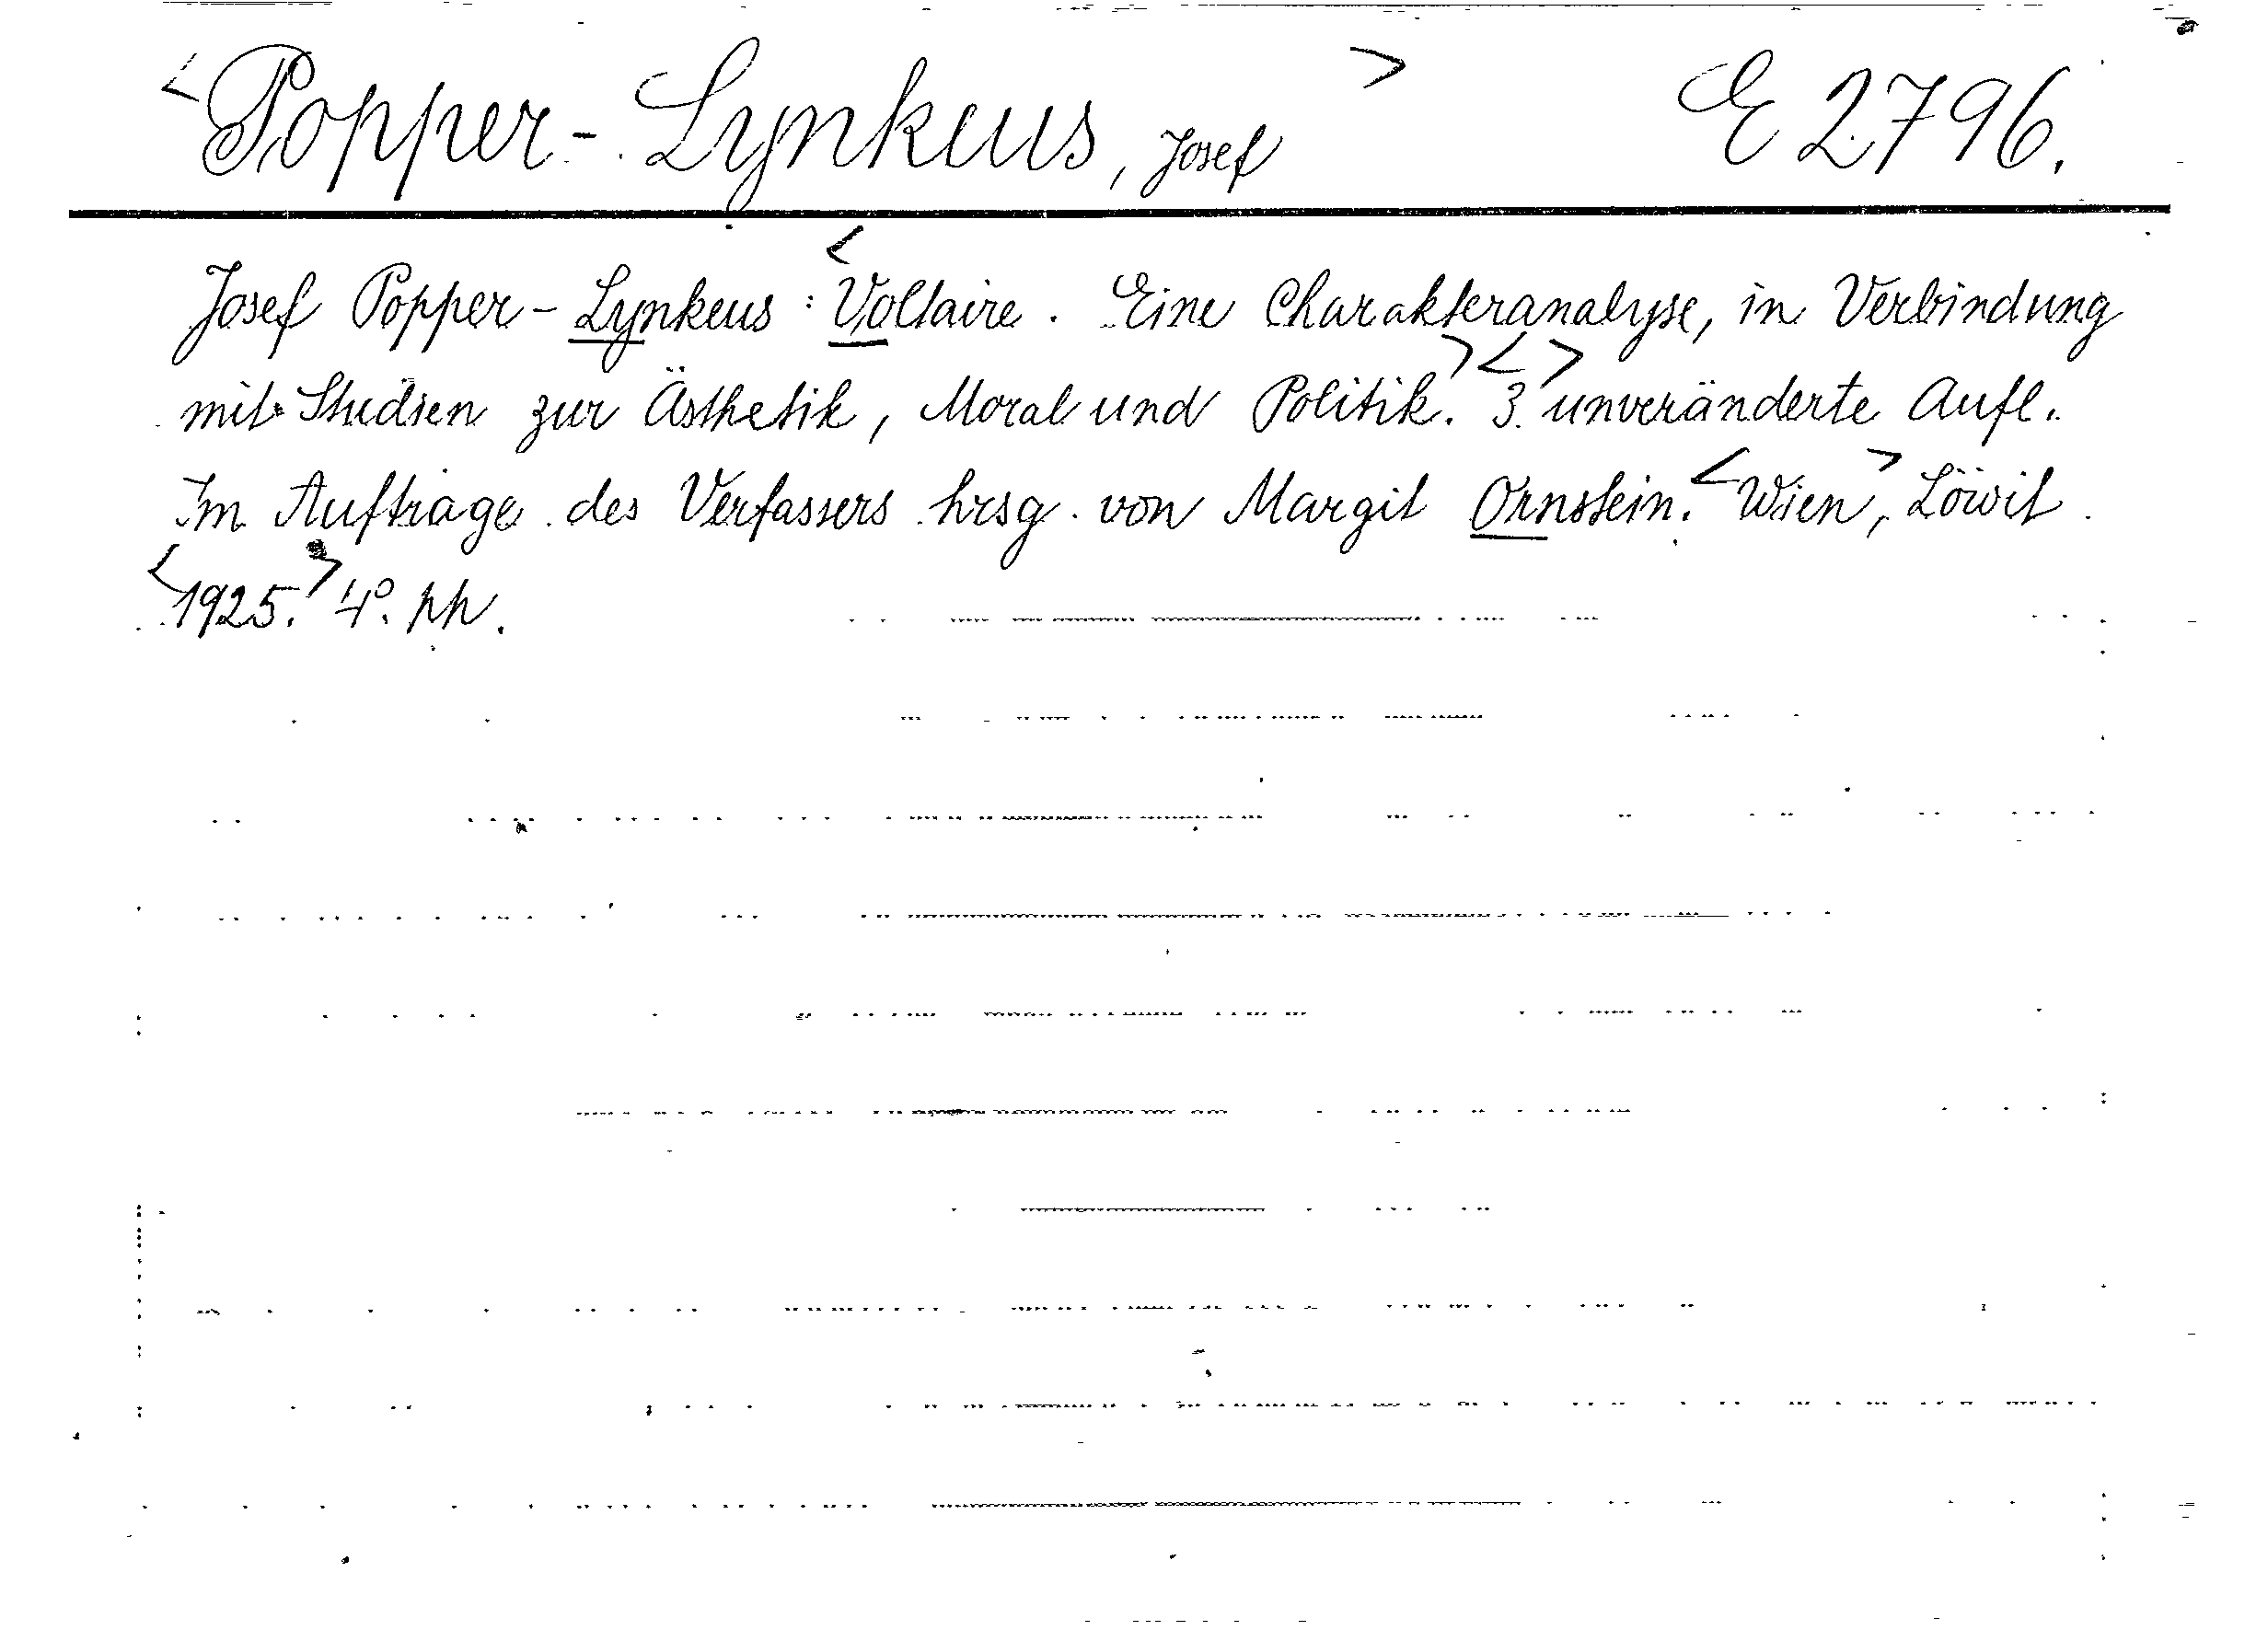 <Popper-Lynkeus, Josef> E 2796.
Josef Popper-Lynkeus: <Voltaire. Eine Charakteranalyse, in Verbindung
mit Studien zur Ästhetik, Moral und Politik.> <3.> unveränderte Aufl.
Im Auftrage des Verfassers hrsg. von Margit Ornstein. <Wien>, Löwit
<1925.> 4°. hh.